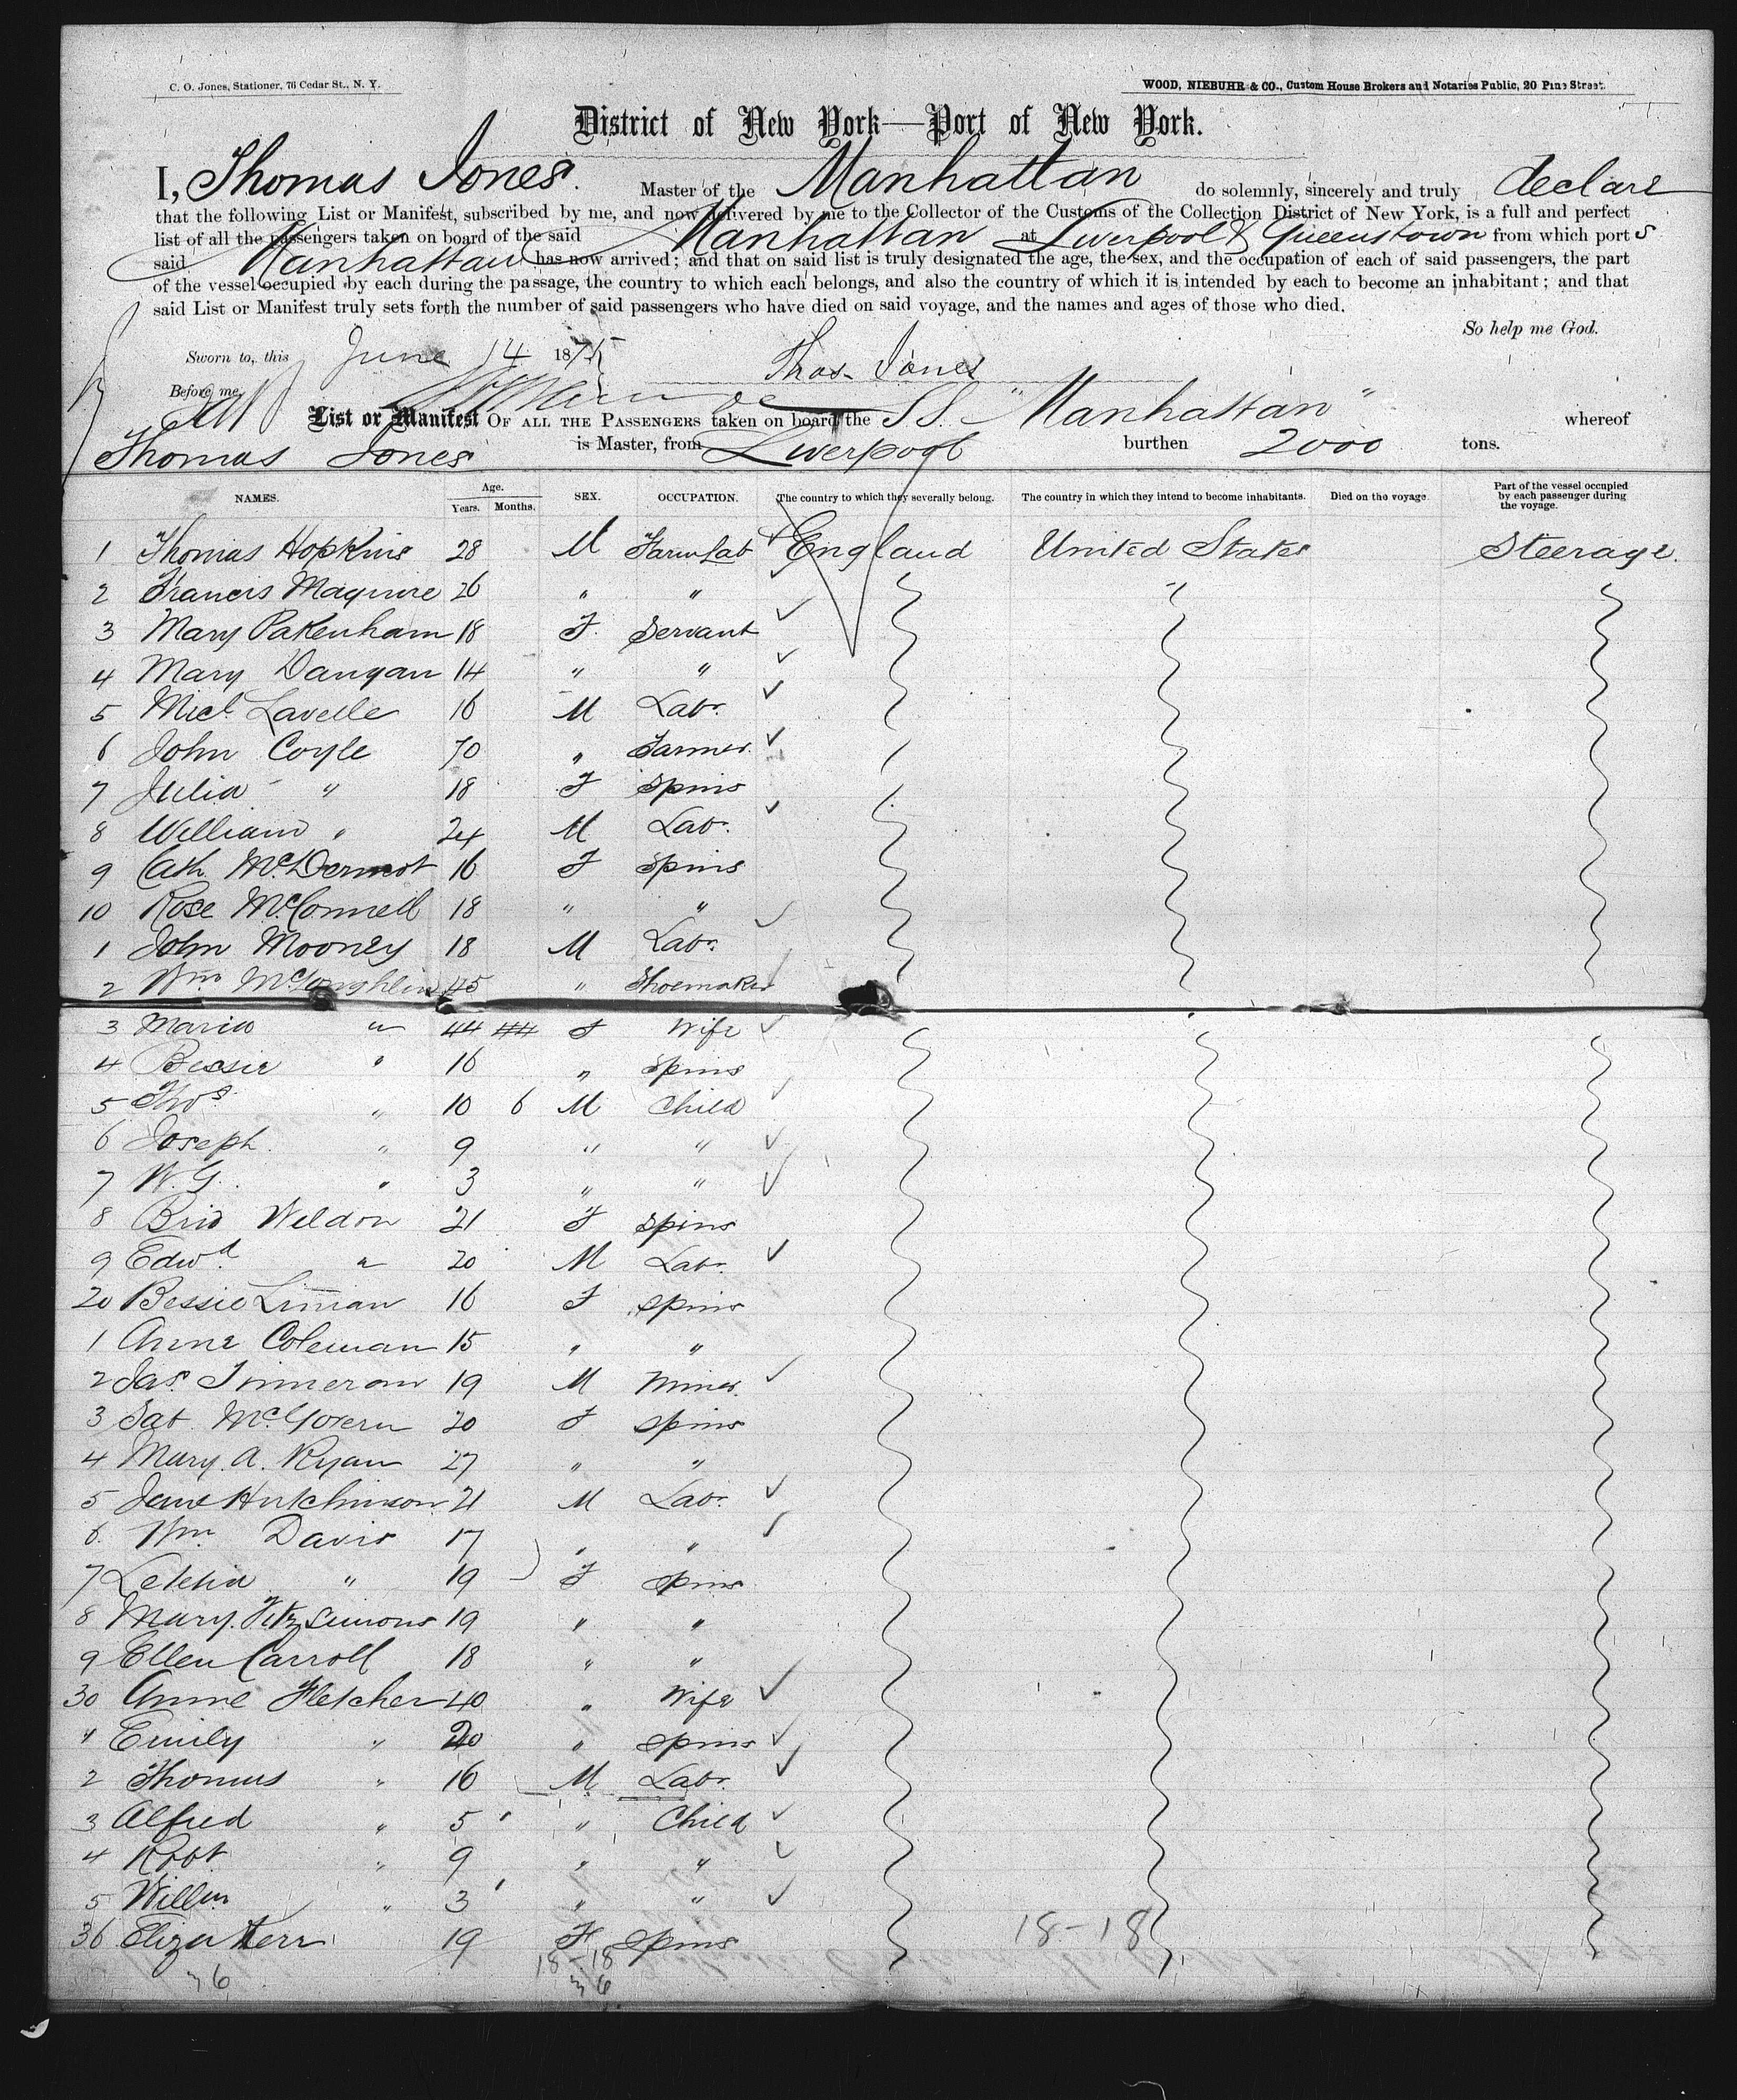 C. O. Jones, Stationer, 76 Cedar St., N. Y.
WOOD, NIEBUHR & CO., Custom House Brokers and Notaries Public, 20 Pine Street.
District of New York—Port of New York.
I, Thomas Jones. Master of the Manhattan do solemnly, sincerely and truly declare
that the following List or Manifest, subscribed by me, and now delivered by me to the Collector of the Customs of the Collection District of New York, is a full and perfect
list of all the passengers taken on board of the said Manhattan at Liverpool & Queenstown from which port s
said Manhattan has now arrived; and that on said list is truly designated the age, the sex, and the occupation of each of said passengers, the part
of the vessel occupied by each during the passage, the country to which each belongs, and also the country of which it is intended by each to become an inhabitant; and that
said List or Manifest truly sets forth the number of said passengers who have died on said voyage, and the names and ages of those who died.
So help me God.
Sworn to, this June 14 1875 Thos. Jones
Before me,
List or Manifest OF ALL THE PASSENGERS taken on board the SS "Manhattan" whereof
Thomas Jones is Master, from Liverpool burthen 2000 tons.
NAMES. Age. Years. Months. SEX. OCCUPATION. The country to which they severally belong. The country in which they intend to become inhabitants. Died on the voyage. Part of the vessel occupied by each passenger during the voyage.
1 Thomas Hopkins 28 M Farm Lab England United States Steerage.
2 Francis Maguire 26 " "
3 Mary Pakenham 18 F. Servant
4 Mary Dangan 14 " "
5 Micl. Lavelle 16 M Labr.
6 John Coyle 70 " Farmer.
7 Julia " 18 F Spins
8 William " 24 M Lab.
9 Cath. McDermot 16 F Spins
10 Rose McConnell 18 " "
1 John Mooney 18 M Labr.
2 Wm McLoughlin 45 " Shoemaker
3 Maria " 44 F Wife
4 Bessie " 16 " Spins
5 Thos " 10 6 M Child
6 Joseph. " 9 " "
7 W. G. " 3 " "
8 Brid Weldon 21 F Spins
9 Edwd. " 20 M Labr.
20 Bessie 16 F Spins
1 Anne Coleman 15 " "
2 Jas. 19 M Miner.
3 McGovern 20 F Spins
4 Mary. A. Ryan 27 " "
5 Hutchinson 21 M Labr.
6. Wm. Davis 17 " "
7 Letitia " 19 F Spins
8 Mary. Fitzsimons 19 " "
9 Ellen Carroll 18 " "
30 Anne Fletcher 40 " Wife
" Emily " 20 " Spins
2 Thomas " 16 M Labr.
3 Alfred " 5 " Child
4 Robt " 9 " "
5 Willm " 3 " "
36 Eliza Kerr 19 F Spins
18-18
18-18
36
36